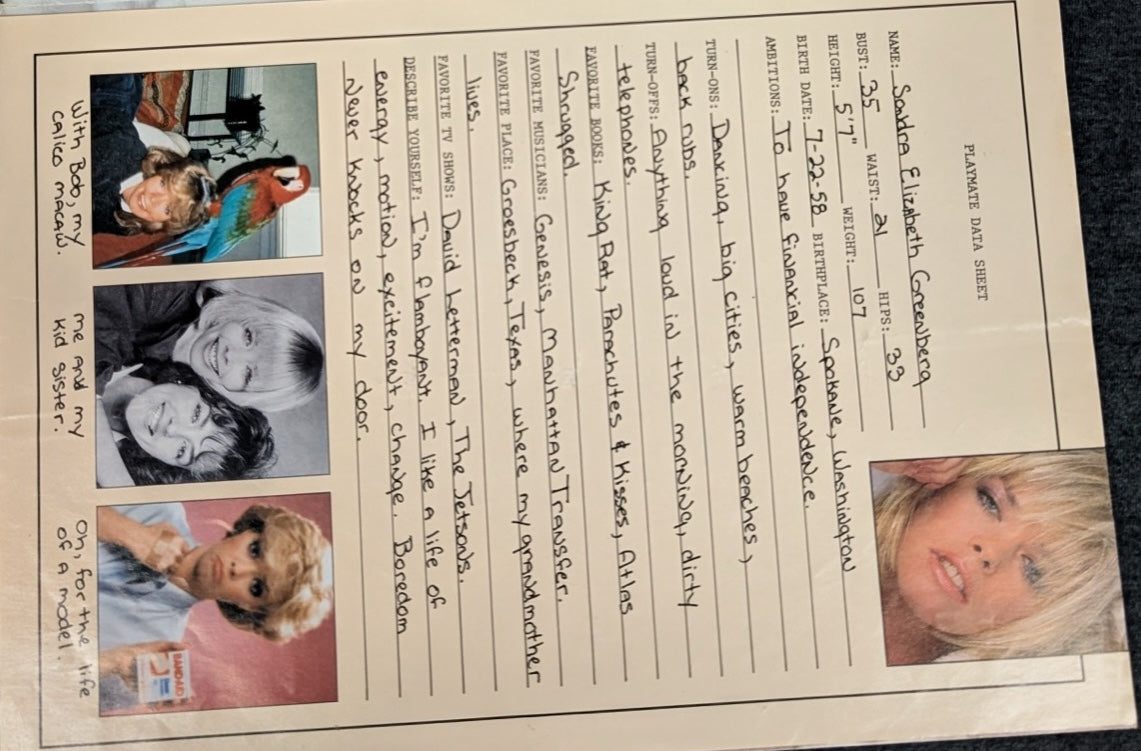 PLAYMATE DATA SHEET
NAME: Sandra Elizabeth Greenberg
BUST: 35 WAIST: 21 HIPS: 33
HEIGHT: 5'7" WEIGHT: 107
BIRTH DATE: 7-22-58 BIRTHPLACE: Spokane, Washington
AMBITIONS: To have financial independence.
TURN-ONS: Dancing, big cities, warm beaches,
back rubs.
TURN-OFFS: Anything loud in the morning, dirty
telephones.
FAVORITE BOOKS: King Rat, Parachutes & Kisses, Atlas
Shrugged.
FAVORITE MUSICIANS: Genesis, Manhattan Transfer.
FAVORITE PLACE: Groesbeck, Texas, where my grandmother
lives.
FAVORITE TV SHOWS: David Letterman, The Jetsons.
DESCRIBE YOURSELF: I'm flamboyant. I like a life of
energy, motion, excitement, change. Boredom
never knocks on my door.
With Bob, my
calico macaw.
me and my
kid sister.
Oh, for the life
of a model.
BAND-AID